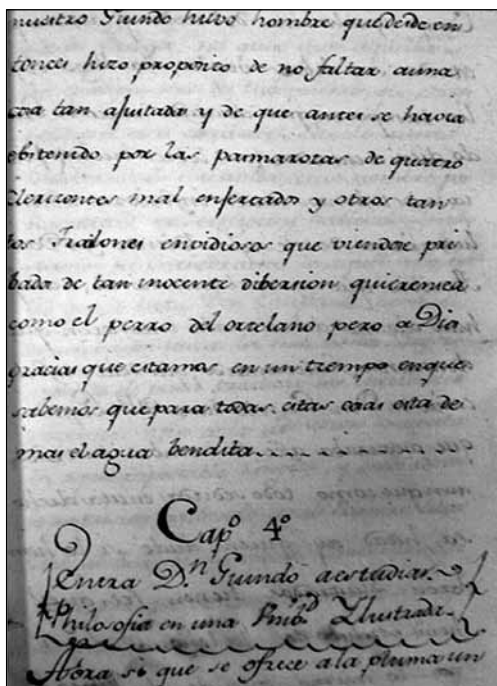 nuestro Guindo huvo hombre que desde en
tonces hizo proposito de no faltar a una
cosa tan ajustada y de que antes se havia
abstenido por las pamarotas de quatro
Clerizontes mal enfercados y otros tan
tos Frailones envidiosos que viendose pri
bados de tan inocente dibersion
como el perro del ortelano pero a Dios
gracias que estamos, en un tiempo enque
sabemos que para todas estas cosas esta de
mas el agua bendita
Capº 4º
Entra D.n Guindo a estudiar
Philosofia en una Ilustrada
Ahora si que se ofrece a la pluma un